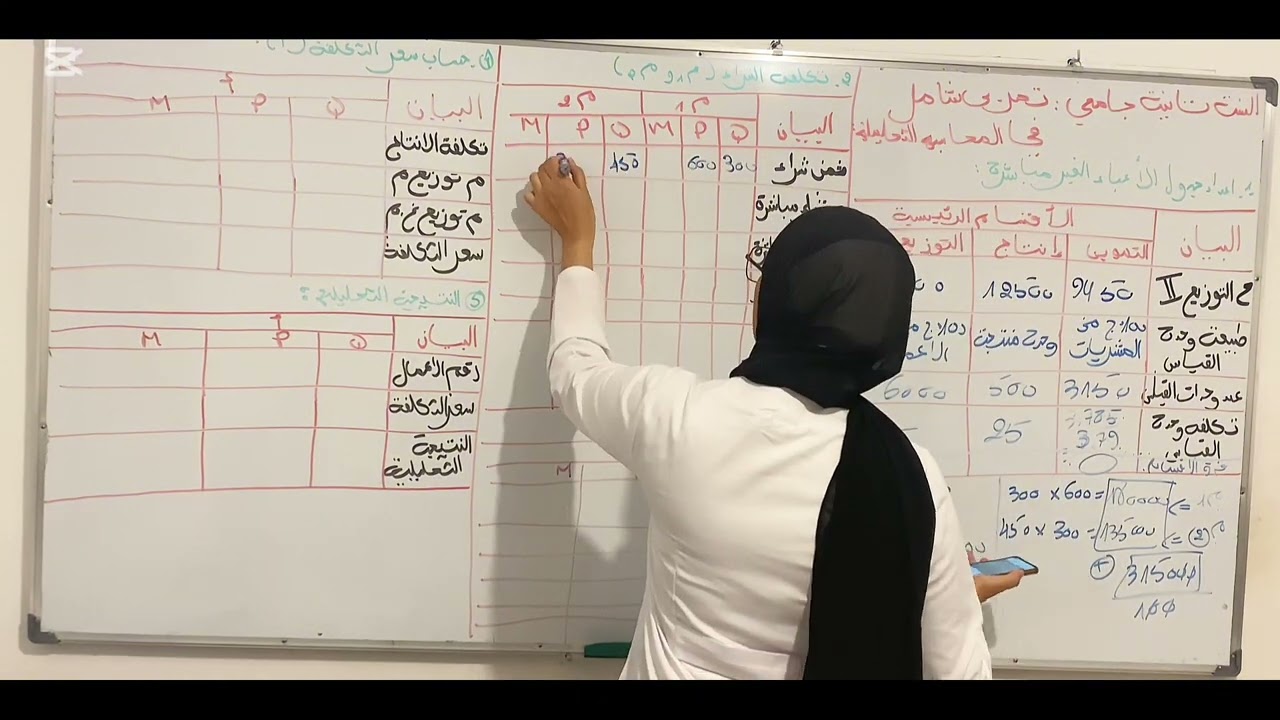 السنة ثانية جامعي: تمرين شامل
في المحاسبة التحليلية:
1. إعداد جدول الأعباء الغير مباشرة:
البيان
الأقسام الرئيسية
التموين
إنتاج
التوزيع
مج التوزيع II
9450
12500
طبيعة وحدة القياس
100دج من المشتريات
وحدة منتجة
عدد وحدات القياس
3150
500
6000
تكلفة وحدة القياس
3
25
300 × 600 = 180000
450 × 300 = 135000 <= م(2)
+ 315000
100
2. تكلفة الشراء (م1 و م2)
البيان
م1
م2
Q P M
Q P M
ثمن شراء
300
600
450
مباشرة
M
4. حساب سعر التكلفة (f).
البيان
f
Q P M
تكلفة الانتاج
م توزيع م
م توزيع غ.م
سعر التكلفة
5 النتيجة التحليلية:
البيان
f
Q P M
رقم الأعمال
سعر التكلفة
النتيجة
التحليلية